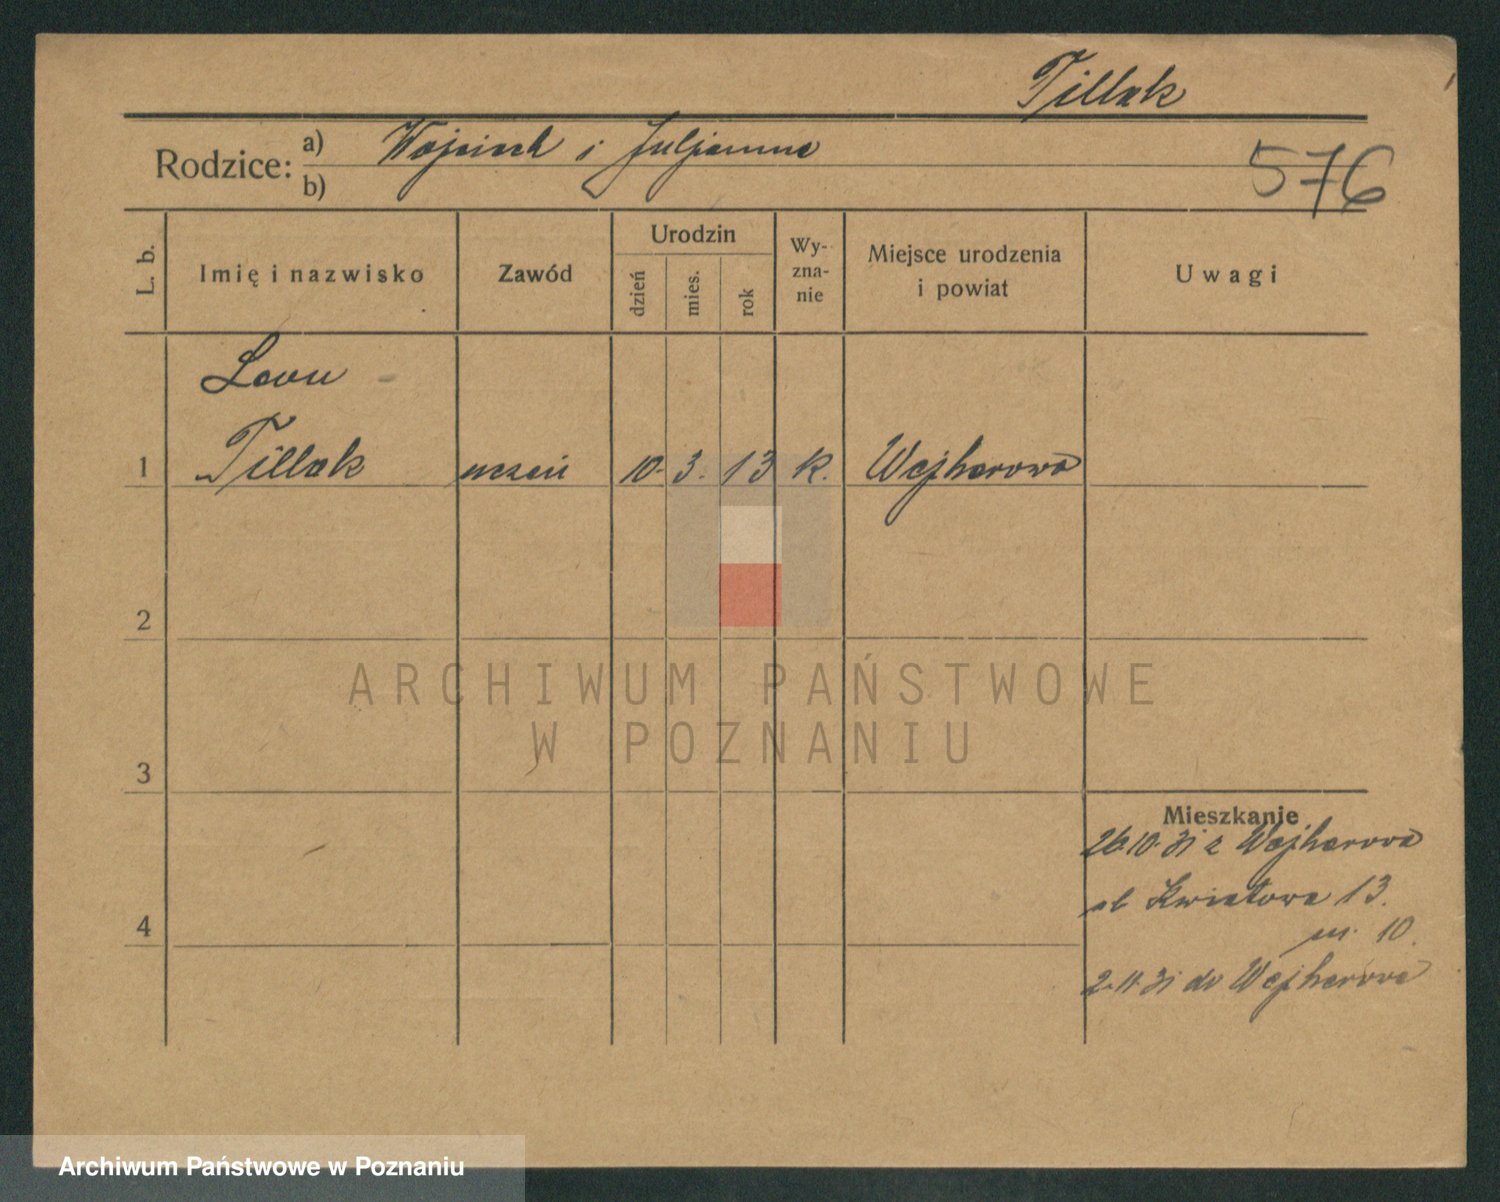 Tillak
Rodzice: a) Wojciech i Juljanna
b)
576
L. b.
Imię i nazwisko
Zawód
Urodzin
dzień
mies.
rok
Wy-
zna-
nie
Miejsce urodzenia
i powiat
Uwagi
Leon
1 Tillak uczeń 10. 3. 13 k. Wejherowo
2
3
4
Mieszkanie
26.10.31 z Wejherowa
ul. Kwiatowa 13.
m. 10.
2.11.31 do Wejherowa
ARCHIWUM PAŃSTWOWE
W POZNANIU
Archiwum Państwowe w Poznaniu